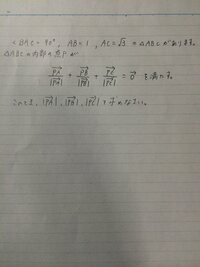 <BAC = 90°, AB = 1, AC = √3 の △ABC があります。
△ABCの内部の点Pが
PA→/|PA→| + PB→/|PB→| + PC→/|PC→| = 0→ を満たす。
このとき、|PA→|, |PB→|, |PC→| を求めなさい。